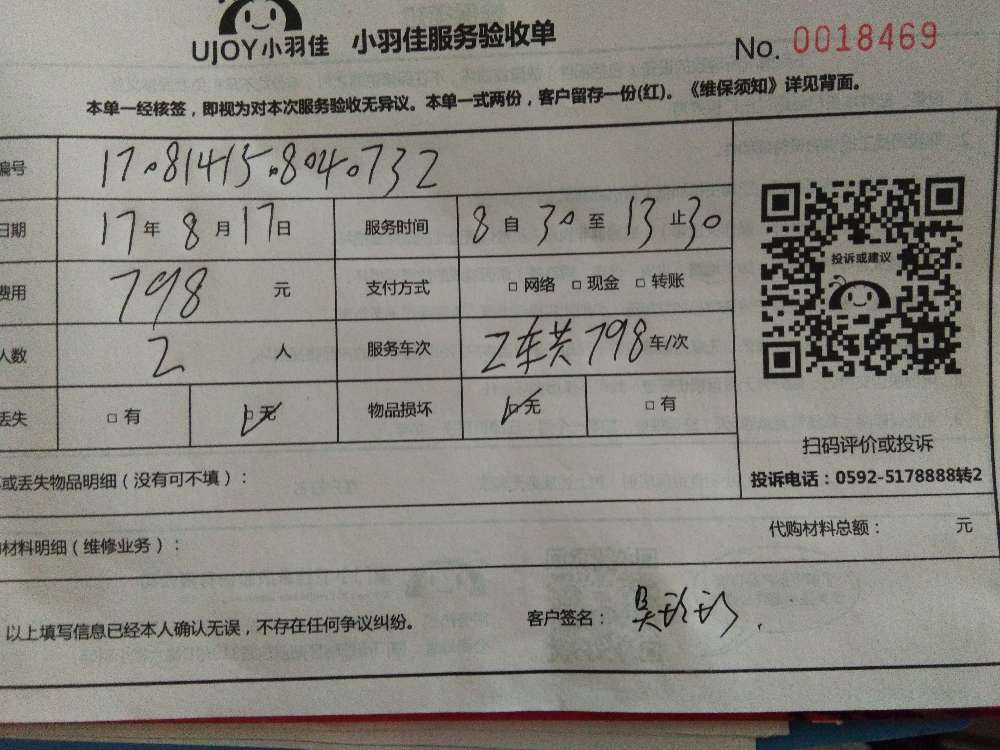 UJOY小羽佳 小羽佳服务验收单 No. 0018469
本单一经核签，即视为对本次服务验收无异议。本单一式两份，客户留存一份(红)。《维保须知》详见背面。
编号 17.81415.804.732
日期 17年8月17日 服务时间 8自30至13止30
费用 798 元 支付方式 □网络 □现金 □转账
人数 2 人 服务车次 2车共798车/次
丢失 □有 □无 物品损坏 □无 □有
投诉或建议
扫码评价或投诉
投诉电话：0592-5178888转2
或丢失物品明细（没有可不填）：
材料明细（维修业务）： 代购材料总额： 元
以上填写信息已经本人确认无误，不存在任何争议纠纷。 客户签名：吴彩彩